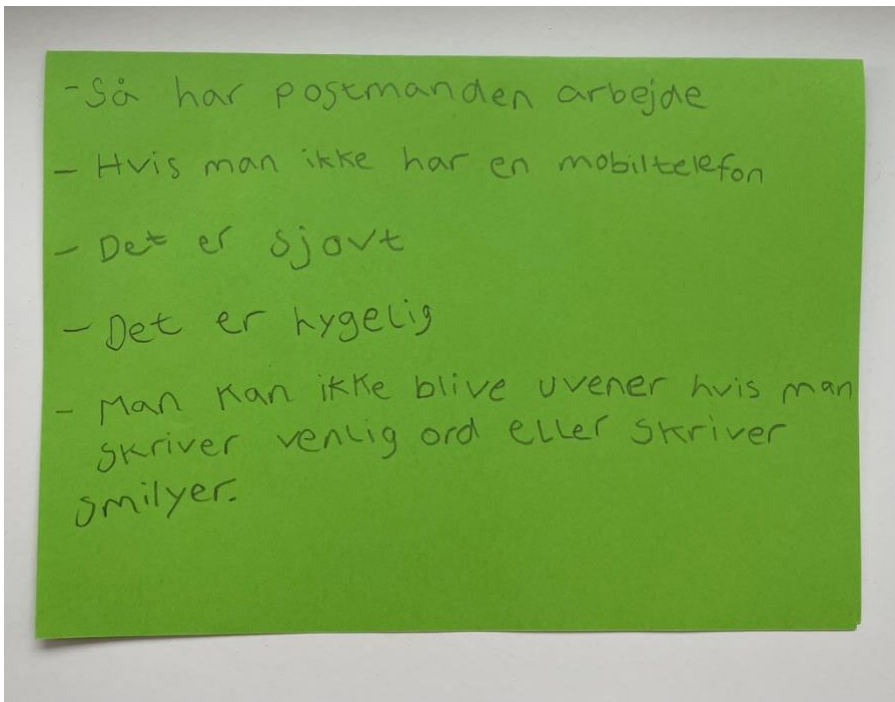 - Så har postmanden arbejde
- Hvis man ikke har en mobiltelefon
- Det er sjovt
- Det er hygelig
- Man kan ikke blive uvener hvis man
skriver venlig ord eller skriver
smilyer.